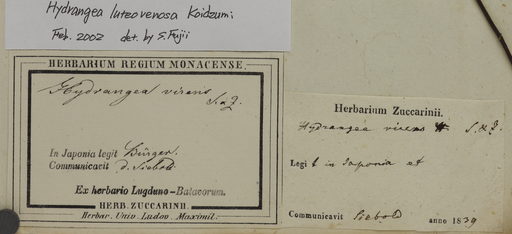 Hydrangea luteovenosa Koidzumi
Feb. 2002 det. by S. Fujii
HERBARIUM REGIUM MONACENSE.
Hydrangea virens
S.&Z.
In Japonia legit Bürger.
Communicavit d. Siebold
Ex herbario Lugduno-Batavorum.
HERB. ZUCCARINII.
Herbar. Univ. Ludov. Maximil.
Herbarium Zuccarinii.
Hydrangea virens S. & Z.
Legit in Japonia et
Communicavit Siebold anno 1839